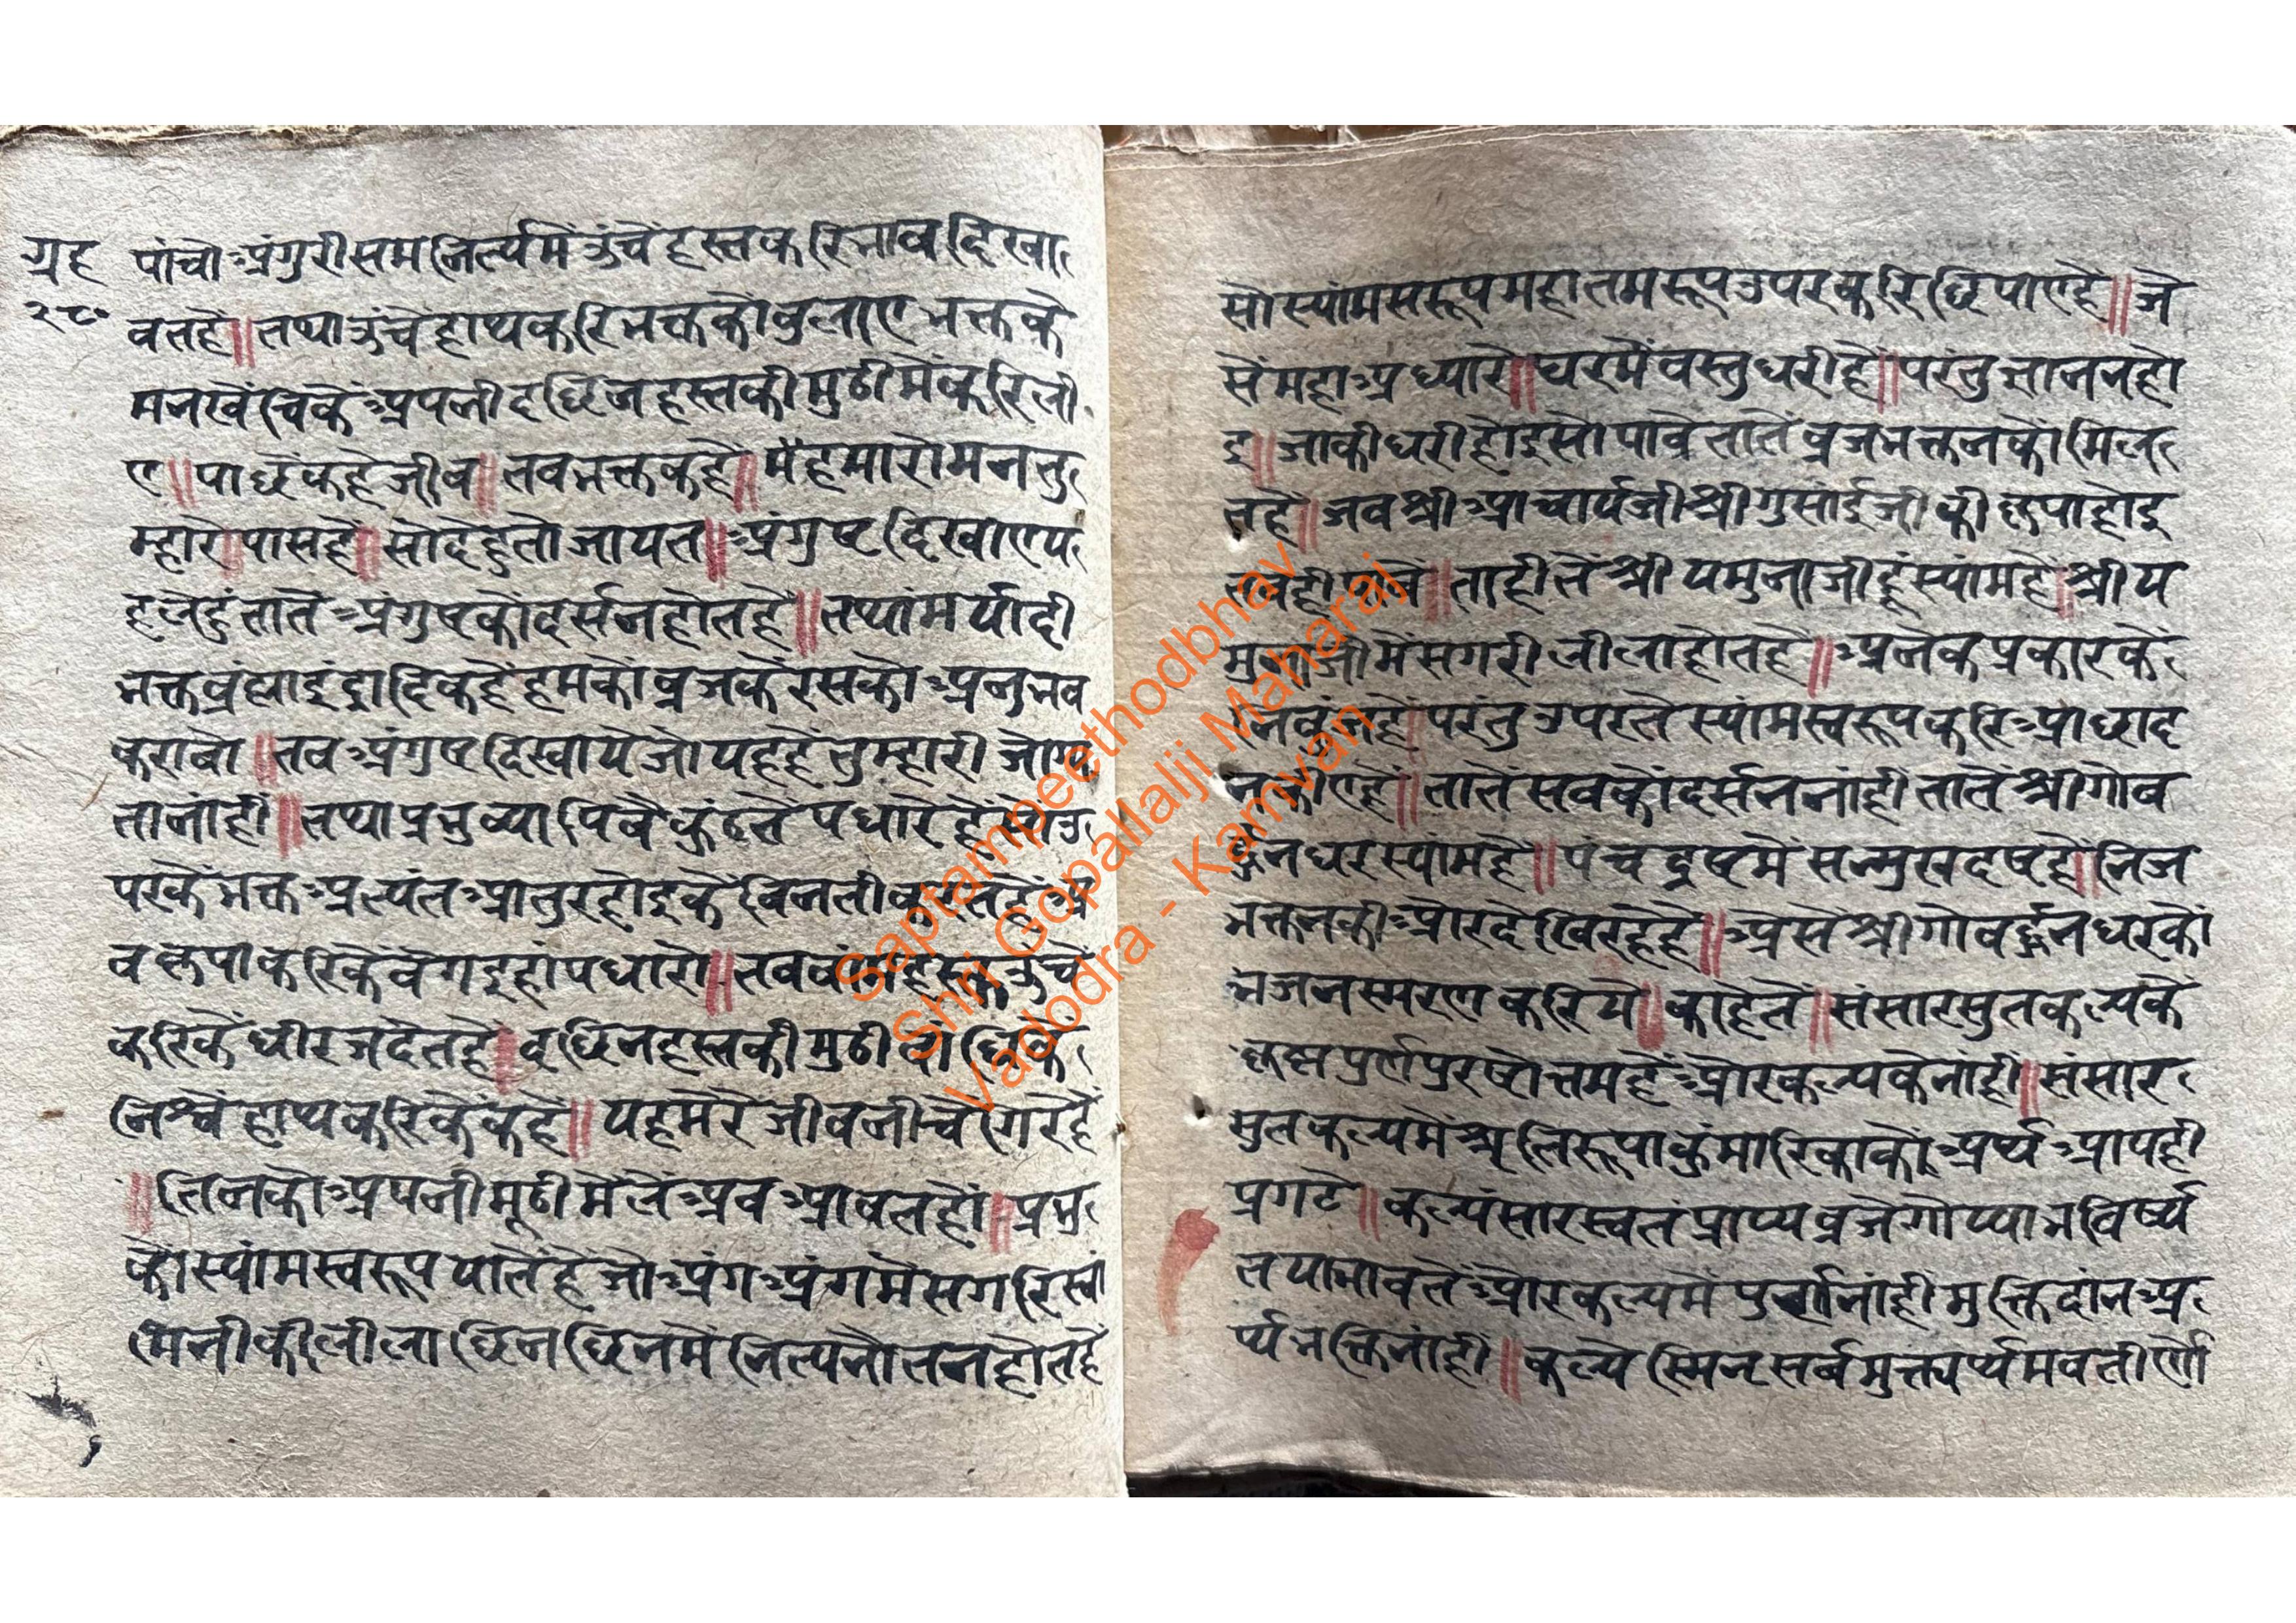 ग्रह
२८०
पांचो अंगुरी सम नित्यमें ऊंचें हस्त करि भाव दिखा
वत हें ॥ तथा ऊंचे हाथ करि भक्त को बुलाए भक्त के
मन खेंचिकें अपनी दछिन हस्त की मुठी में करि ली
ए ॥ पाछें कहे जीव ॥ तव भक्त कहें ॥ में हमारो मन तु
म्हारे ॥ पास हे ॥ सो देहु तो जाय त ॥ अंगुष्ट दिखाए प
हलेहुं तातें अंगुष्ट को दर्सन होत हें ॥ तथा मर्यादी
भक्त ब्रंह्मा इंद्रादिक हें हम कों व्रज के रस को अनुभव
करावो ॥ तव अंगुष्ट दिखाये जो यह हें तुम्हारी
ता नांही ॥ तथा प्रभु व्यापि वैकुंठ तें पधारे हें सो उ
पर कें भक्त अत्यंत आतुर होइ कें विनती करत हें
व कृपा करिकें वेग इहां पधारो ॥ तव वांम हस्त ऊंचें
करिकें धीरज देत हें ॥ दछिन हस्त की मुठी वांधिकें
निश्चें हाथ करिकें कहें ॥ यह मेरे जीव नीचे गिरे हें
॥ तिनको अपनी मूठी में लें अव आवत हों ॥ प्रभु
को स्यांम स्वरूप यातें हे जो अंग अंग में सगरि स्वां
मिनी की लीला छिन छिन में नित्य नौतन होत हें
सो स्यांम सरूप महातम रूप उपर करि छिपाए हें ॥ जे
सें महा अध्यारे ॥ घर में वस्तु धरी हें ॥ परंतु ज्ञान न हो
इ ॥ जाकी धरी होइ सो पावे तातें व्रजभक्तन कों मिल
त हे ॥ जव श्री आचार्यजी श्री गुसांईजी की कृपा होइ
तवही पावें ॥ ताही तें श्री यमुनाजी हूं स्यांम हें ॥ श्री य
मुनाजी में सगरी लीला होत हें ॥ अनेक प्रकार कें
हें ॥ परंतु उपर तें स्यांम स्वरूप करि आछाद
न कीए हें ॥ तातें सव कों दर्सन नांही तातें श्री गोव
र्द्धनधर स्यांम हें ॥ पंच द्रष्ट में सन्मुख द्रष्ट हें ॥ निज
भक्तन की ओर देखि रहे हें ॥ असें श्री गोवर्द्धनधर कों
भजन स्मरण करिये ॥ काहेतें ॥ संसारसुत कल्प कें
कृष्ण पुर्ण पुरषोत्तम हें ओर कल्प के नांही ॥ संसार
सुत कल्प में श्रुतिरूपा कुंमारिका कों अर्थ आपही
प्रगटे ॥ कल्पं सारस्वतं प्राप्य व्रजे गोप्यो भविष्य
त या भाव तें ओर कल्प में पुर्ण नांही मुक्तिदांन अ
र्थ भक्ति नांही ॥ कल्पे स्मिन् सर्व मुक्त्यर्थमवतीर्णो